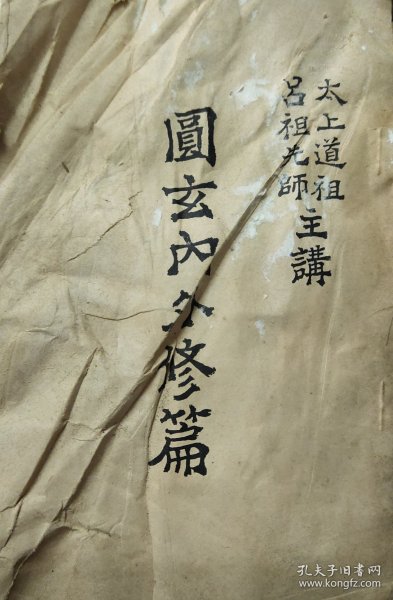 太上道祖
呂祖先師
主講
圓玄內外修篇
孔夫子旧书网
www.kongfz.com